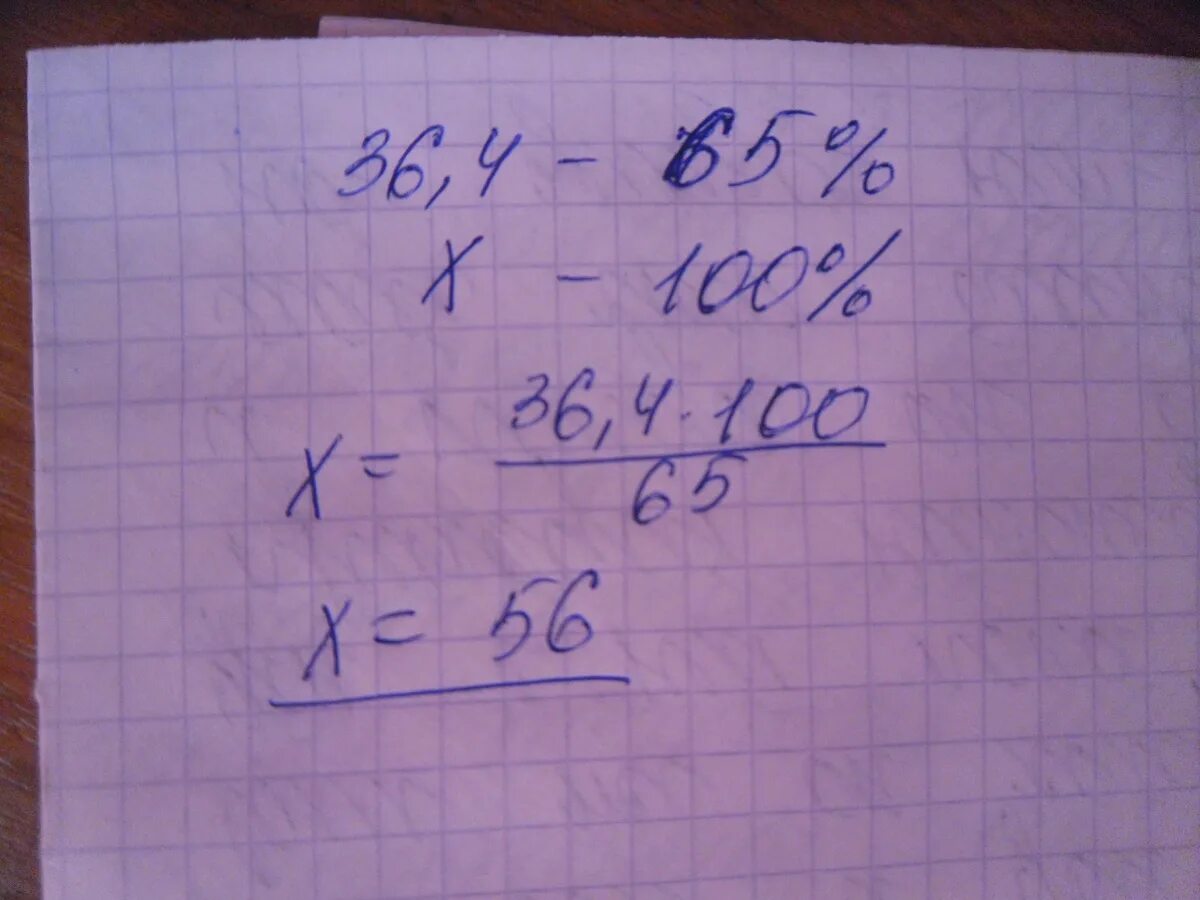 36,4 - 65%
x - 100%
x = 36,4 · 100 / 65
x = 56